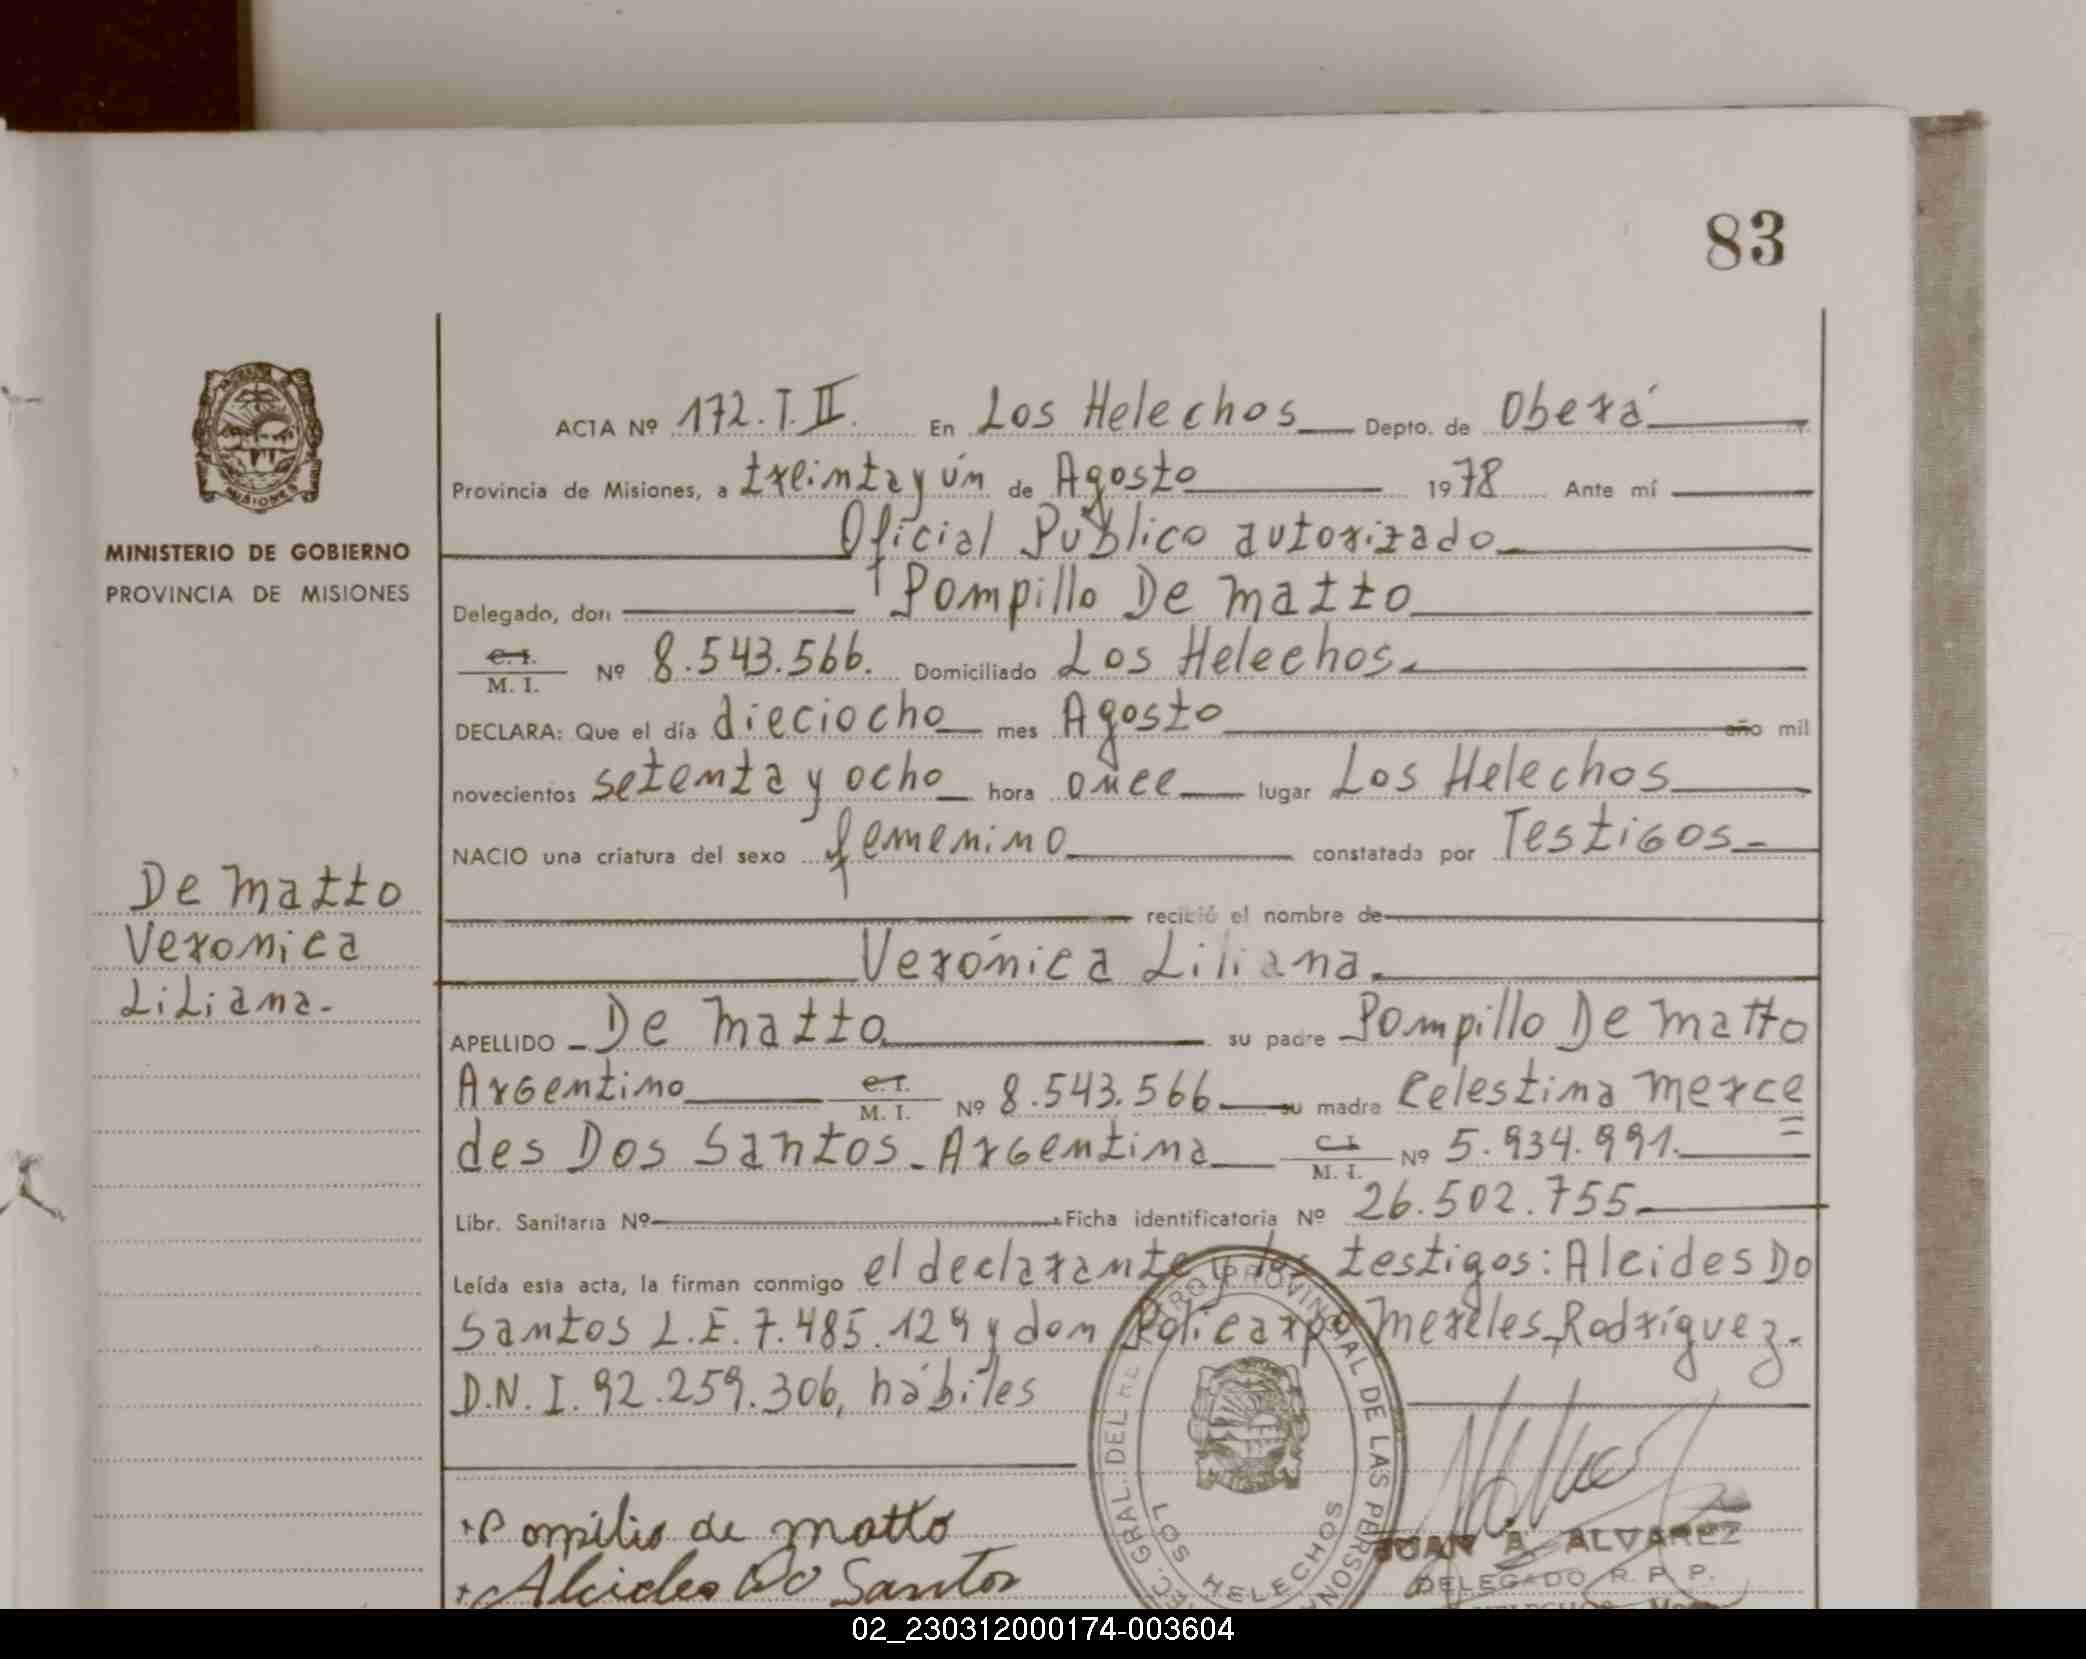 83
ACTA Nº 172.T.II. En Los Helechos Depto. de Oberá
Provincia de Misiones, a treinta y ún de Agosto 1978 Ante mí
Oficial Público autorizado
Delegado, don Pompillo De Matto
C. I. M. I. Nº 8.543.566. Domiciliado Los Helechos.
DECLARA: Que el día dieciocho mes Agosto año mil
novecientos setenta y ocho hora once lugar Los Helechos
NACIO una criatura del sexo femenino constatada por Testigos
recibió el nombre de
Verónica Liliana.
APELLIDO De Matto su padre Pompillo De Matto
Argentino C. I. M. I. Nº 8.543.566 su madre Celestina Merce
des Dos Santos - Argentina C. I. M. I. Nº 5.934.991.
Libr. Sanitaria Nº Ficha identificatoria Nº 26.502.755
Leída esta acta, la firman conmigo el declarante y los testigos: Alcides Do
Santos L.E. 7.485.129 y don Policarpo Mereles Rodríguez.
D.N.I. 92.259.306, hábiles
MISIONES
MINISTERIO DE GOBIERNO
PROVINCIA DE MISIONES
De Matto
Veronica
Liliana.
Pompilio de matto
Alcides Do Santos
GRAL. DEL PROVINCIAL DE LAS PERSONA
LOS HELECHOS
JUAN A. ALVAREZ
DELEGADO R. P. P.
02_230312000174-003604